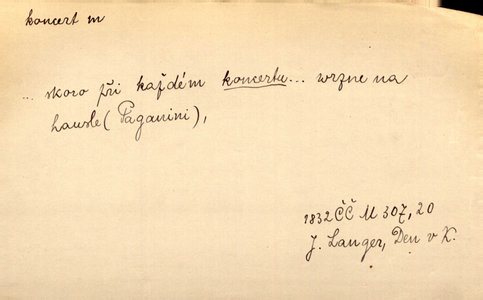 koncert m
... skoro při každém koncertu... wrzne na
hausle (Paganini),
1832 ČČM 307, 20
J. Langer, Den v K.